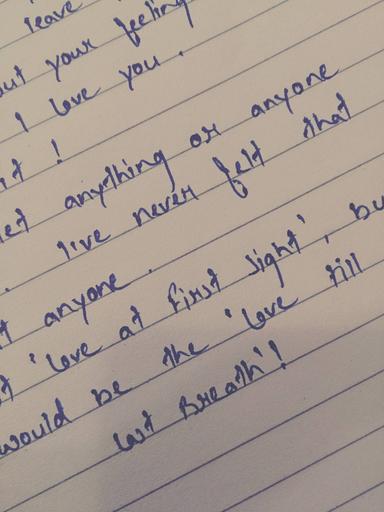 leave
out your feeling
I love you.
it!
let anything or anyone
. I've never felt that
anyone.
'love at first sight', bu
would be the 'love till
last Breath'!